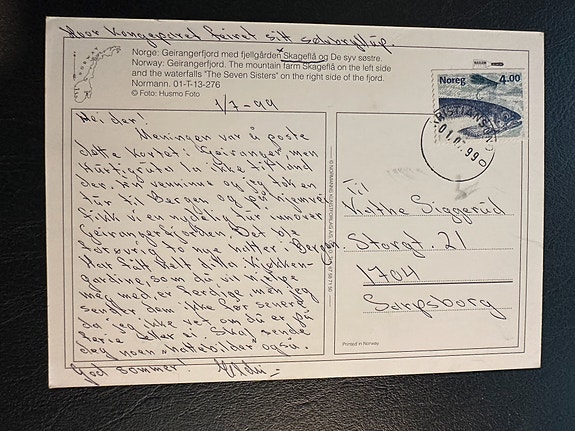 Hvor kongeparet feiret sitt sølvbryllup.
Norge: Geirangerfjord med fjellgården Skageflå og De syv søstre.
Norway: Geirangerfjord. The mountain farm Skageflå on the left side
and the waterfalls "The Seven Sisters" on the right side of the fjord.
Normann. 01-T-13-276
© Foto: Husmo Foto
Noreg 4.00
KRISTIANSUND
01.0.99
1/7-99
Hei der!
Meningen var å poste
dette kortet i Geiranger, men
Hurtigruta la ikke til land
der. En venninne og jeg tok en
tur til Bergen og på hjemvei
fikk vi en nydelig tur innover
Geirangerfjorden. Det ble
forsvrig to mye hatter i Bergen.
Har fått helt dilla. Kjøkken-
gardine, som du vil hjelpe
meg med, er ferdige, men jeg
sender dem ikke før senere
da jeg ikke vet om du er på
ferie eller ei. Skal sende
deg noen "hattebilder" også.
God sommer.
Til
Käthe Siggerud
Storgt. 21
1704
Sarpsborg
Printed in Norway